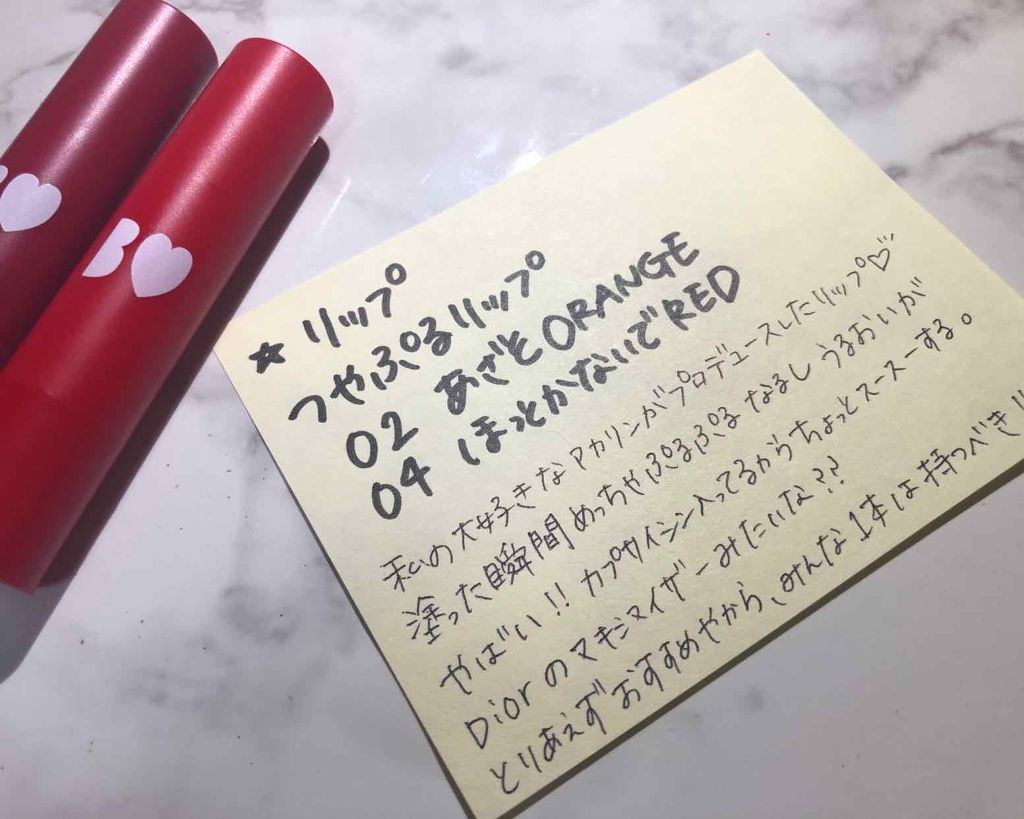 B♥
☆ リップ
つやぷるリップ
02 あざとORANGE
04 ほっとかないでRED
私の大好きなアカリンがプロデュースしたリップ♡
塗った瞬間めっちゃぷるぷるなるし うるおいが
やばい!! カプサイシン入ってるからちょっとスースーする。
Diorのマキシマイザーみたいな??
とりあえずおすすめやから、みんな1本は持つべき!!